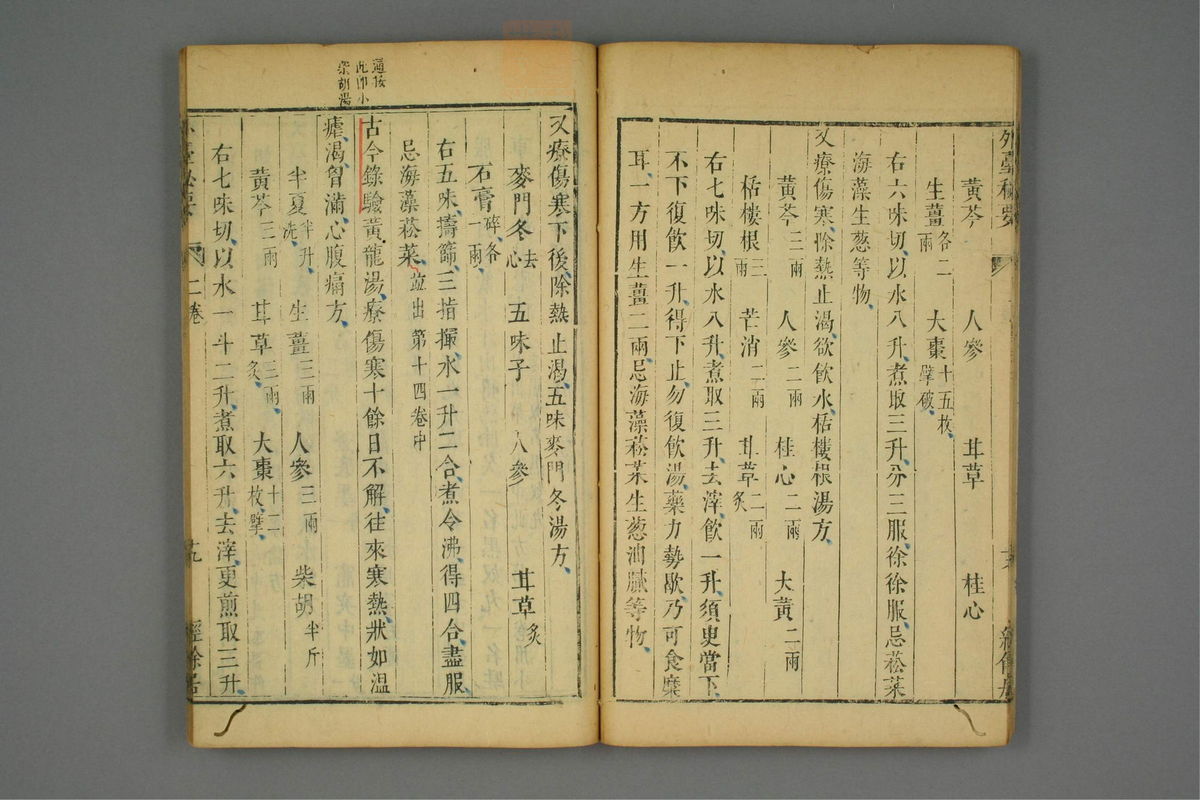 外臺秘要
黃芩 人參 甘草 桂心
生薑各二兩 大棗十五枚擘破
右六味切以水八升煮取三升分三服徐徐服忌菘菜
海藻生葱等物
又療傷寒除熱止渴欲飲水栝樓根湯方
黃芩三兩 人參二兩 桂心二兩 大黃二兩
栝樓根三兩 芒消二兩 甘草二兩炙
右七味切以水八升煮取三升去滓飲一升須臾當下
不下復飲一升得下止勿復飲湯藥力勢歇乃可食糜
耳一方用生薑二兩忌海藻菘菜生葱油膩等物
又療傷寒下後除熱止渴五味麥門冬湯方
麥門冬去心 五味子 人參 甘草炙
石膏碎各一兩
右五味擣篩三指撮水一升二合煮令沸得四合盡服
忌海藻菘菜並出第十四卷中
古今錄驗黃龍湯療傷寒十餘日不解往來寒熱狀如溫
瘧渴胷滿心腹痛方
半夏半升洗 生薑三兩 人參三兩 柴胡半斤
黃芩三兩 甘草三兩炙 大棗十二枚擘
右七味切以水一斗二升煮取六升去滓更煎取三升
二卷 十九 經餘居
此即小
柴胡湯